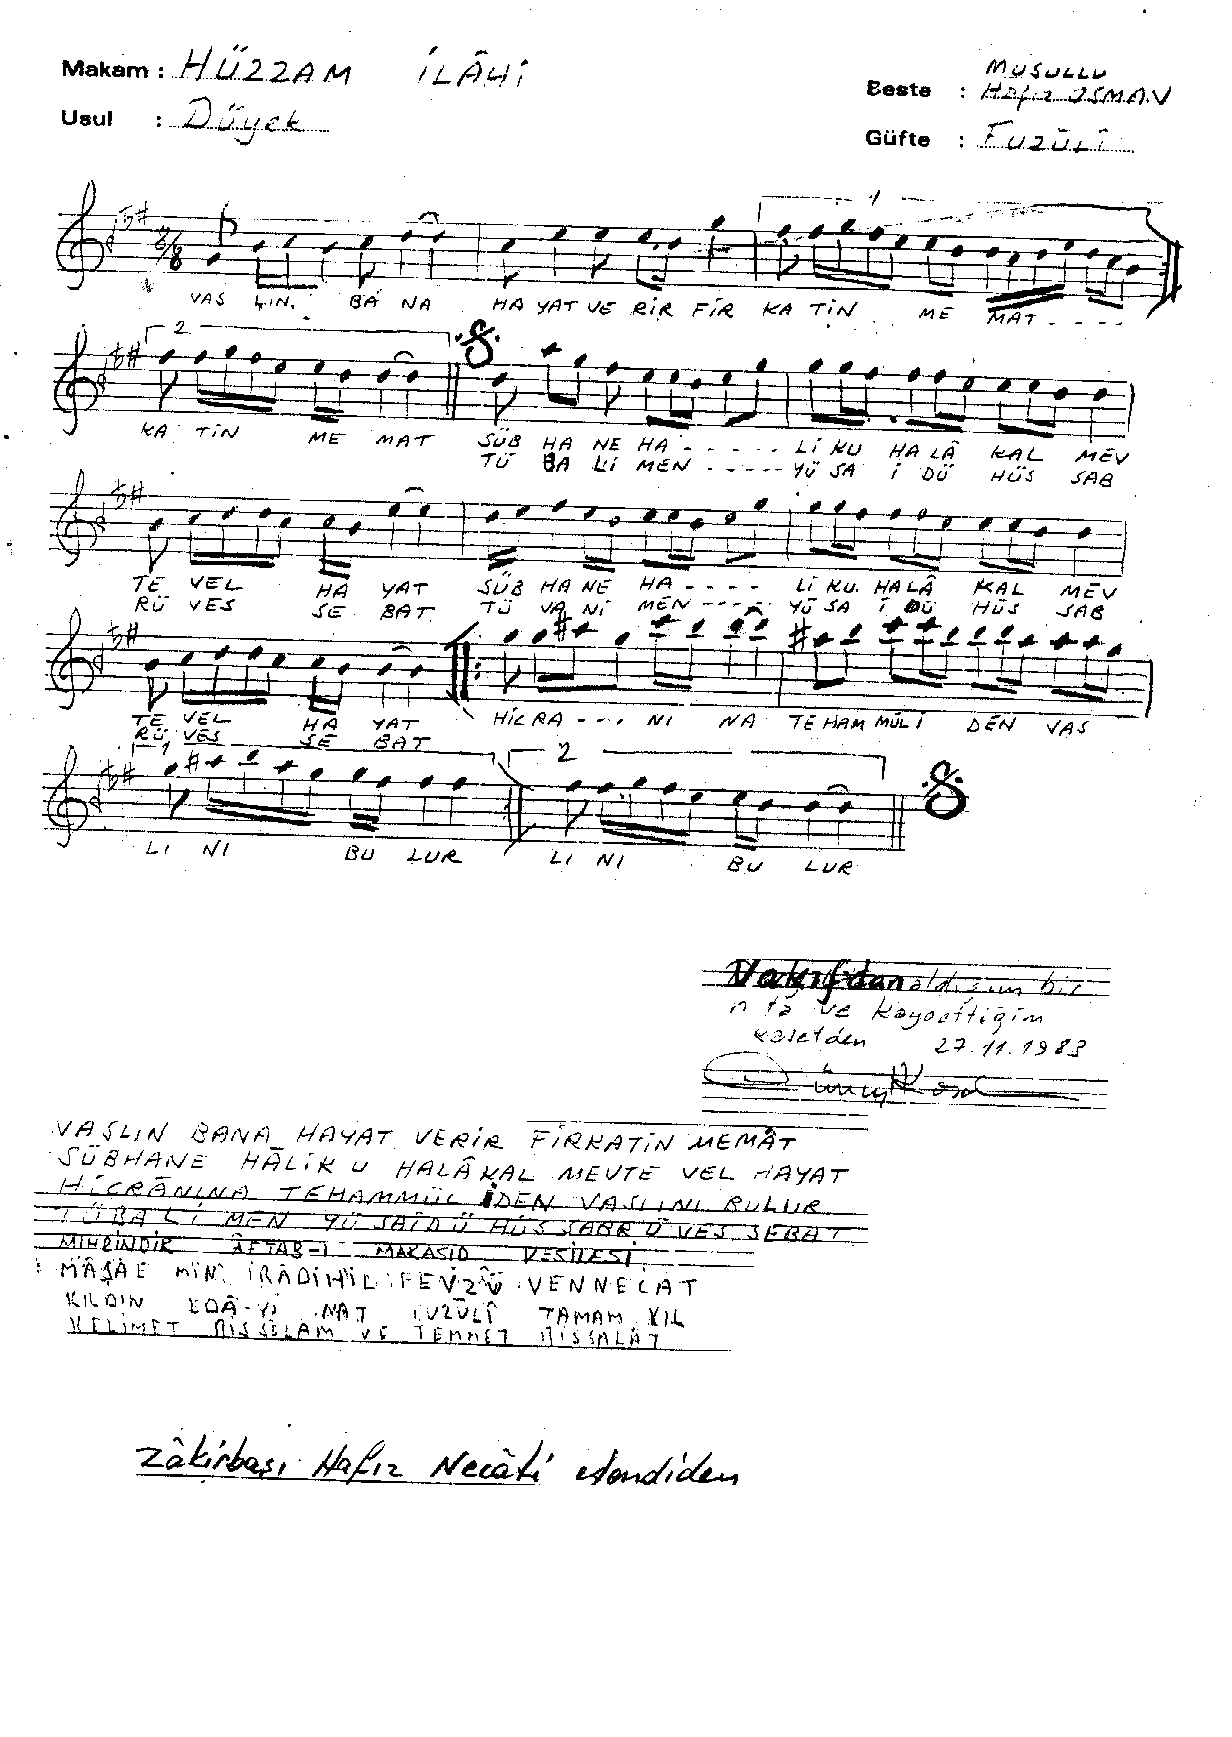 Makam : HÜZZAM İLÂHİ
Usul : Düyek
Beste : MUSULLU Hafız OSMAN
Güfte : FUZÛLÎ
8/8
1
VAS LIN. BA NA HA YAT VE RİR FİR KA TİN ME MAT - - - -
2
KA TİN ME MAT SÜB HA NE HA - - - - - Lİ KU HA LÂ KAL MEV
TÛ BA Lİ MEN - - - - - YÜ SA İ DÜ HÜS SAB
TE VEL HA YAT SÜB HA NE HA - - - - Lİ KU. HA LÂ KAL MEV
RÜ VES SE BAT TÛ VA Nİ MEN - - - - YÜ SA İ DÜ HÜS SAB
TE VEL HA YAT HİC RA - - - Nİ NA TE HAM MÜL İ DEN VAS
RÜ VES SE BAT
1 2
LI NI BU LUR LI NI BU LUR
Vakıfdan aldığım bir
nota ve kaydettiğim
kasetden 27.11.1983
VASLIN BANA HAYAT VERİR FİRKATİN MEMÂT
SÜBHANE HÂLİK U HALÂKAL MEVTE VEL HAYAT
HİCRÂNINA TEHAMMÜL İDEN VASLINI BULUR
TÛBA Lİ MEN YÜ SAİDÜ HÜS SABRÜ VES SEBAT
MİHRİNDİR ÂFTAB-I MAKASID VESİLESİ
MÂŞÂE MİN İRÂDİHİL FEVZÜ VENNECAT
KILDIN EDÂ-YI NAT FUZÛLÎ TAMAM KIL
KELİMET BİSSELAM VE TEMMET BİSSALÂT
Zâkirbaşı Hafız Necâti efendiden